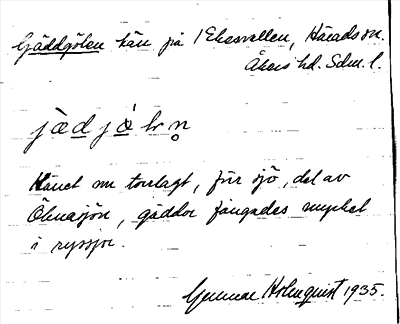 Gäddgölen kärr på Ekavallen, Härads sn.
Åkers hd. Sdm. l.
jädjölrn
Kärret nu torrlagt, förr sjö, del av
Ölnasjön, gäddor fångades mycket
i ryssjor.
Gunnar Holmquist 1935.